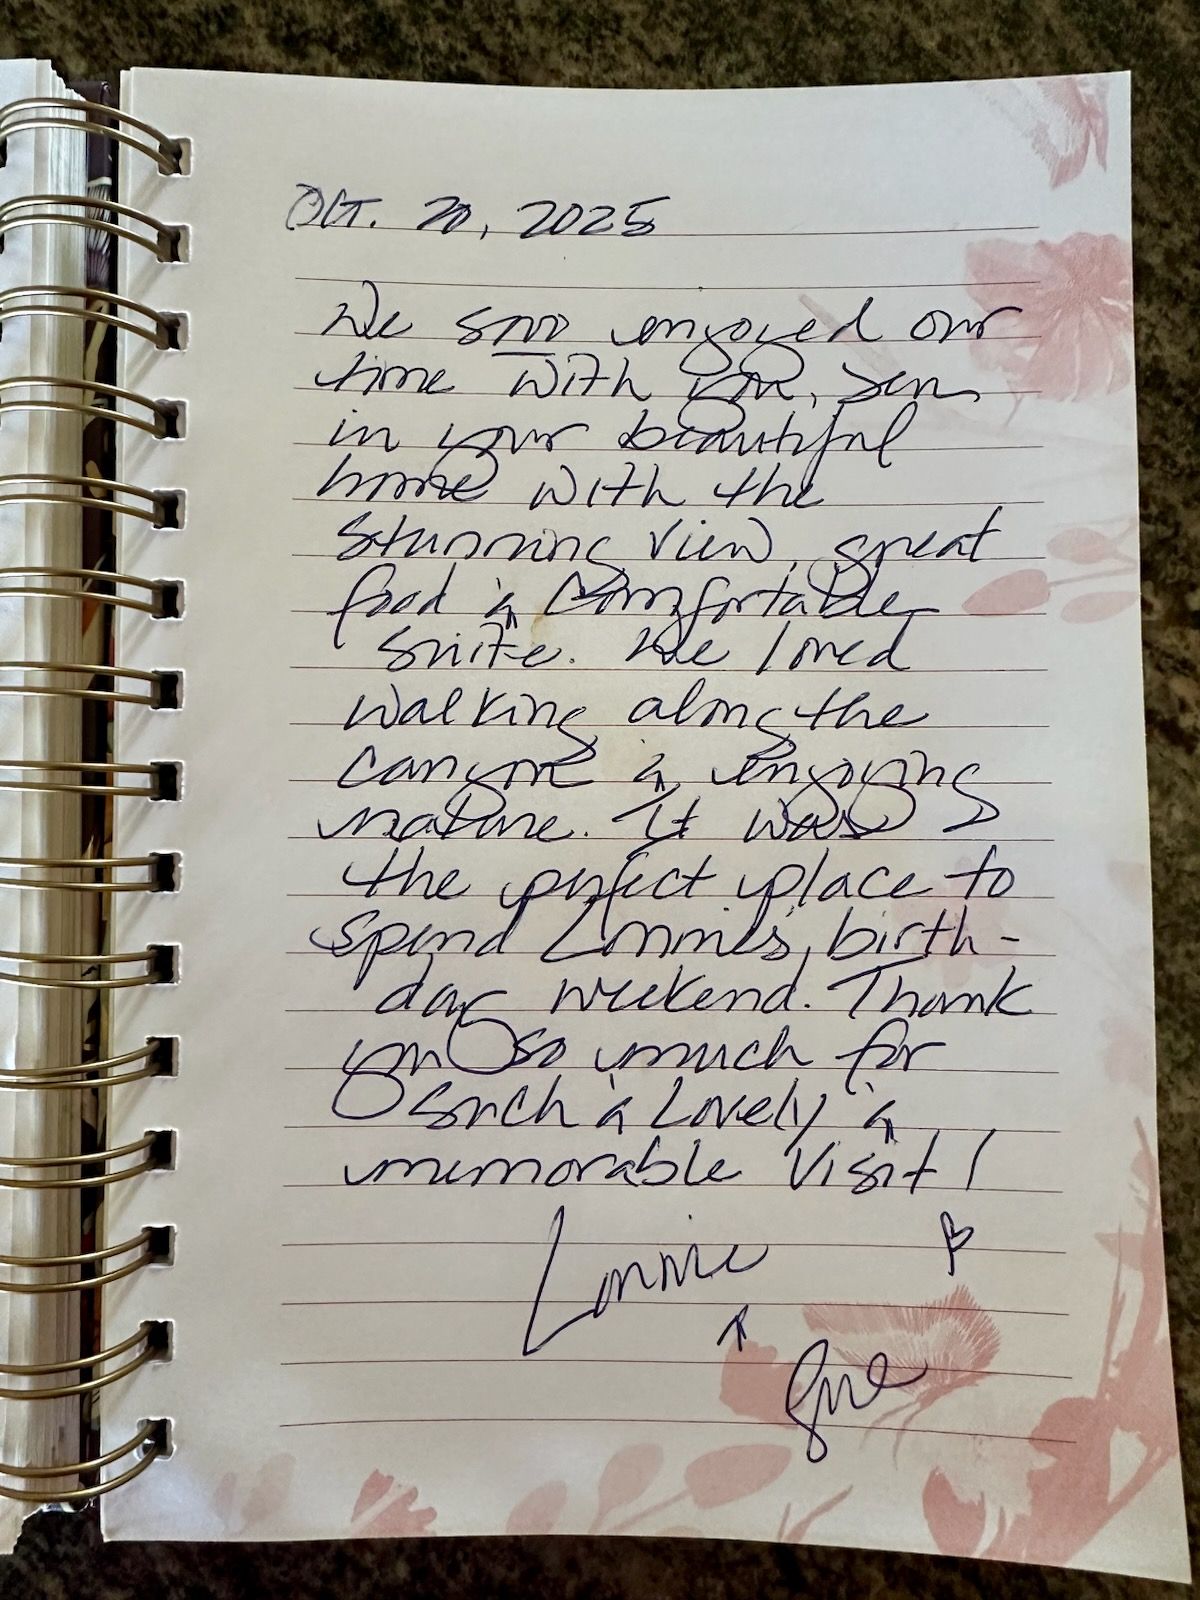 Oct. 20, 2025
We soo enjoyed our
time with you, Jen,
in your beautiful
home with the
stunning view, great
food & comfortable
suite. We loved
walking along the
canyon & enjoying
nature. It was
the perfect place to
spend Lonnie's birth-
day weekend. Thank
you so much for
such a lovely &
memorable visit!
Lonnie
&
Sue